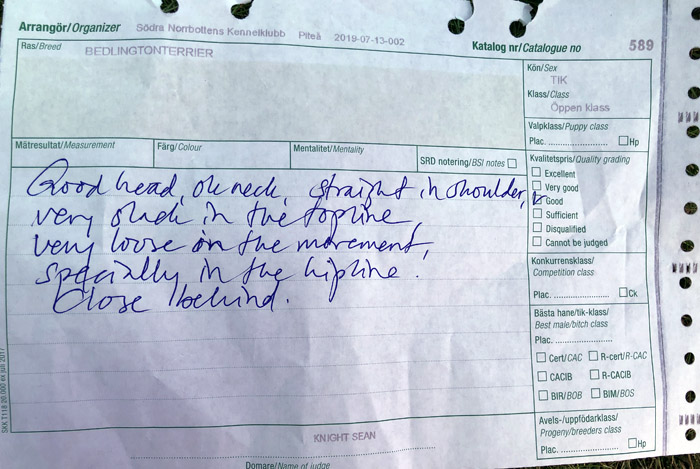 Arrangör/Organizer Södra Norrbottens Kennelklubb Piteå 2019-07-13-002
Katalog nr/Catalogue no 589
Ras/Breed BEDLINGTONTERRIER
Kön/Sex
TIK
Klass/Class
Öppen klass
Valpklass/Puppy class
Plac. .................... Hp
Mätresultat/Measurement Färg/Colour Mentalitet/Mentality SRD notering/BSI notes
Kvalitetspris/Quality grading
Excellent
Very good
Good
Sufficient
Disqualified
Cannot be judged
Good head, ok neck, straight in shoulder,
very in the topline,
very loose on the movement,
specially in the hipline.
Close behind.
Konkurrensklass/
Competition class
Plac. .................... Ck
Bästa hane/tik-klass/
Best male/bitch class
Plac. ....................
Cert/CAC R-cert/R-CAC
CACIB R-CACIB
BIR/BOB BIM/BOS
Avels-/uppfödarklass/
Progeny/breeders class
Plac. .................... Hp
KNIGHT SEAN
Domare/Name of judge
SKK T118 20.000 ex juli 2017